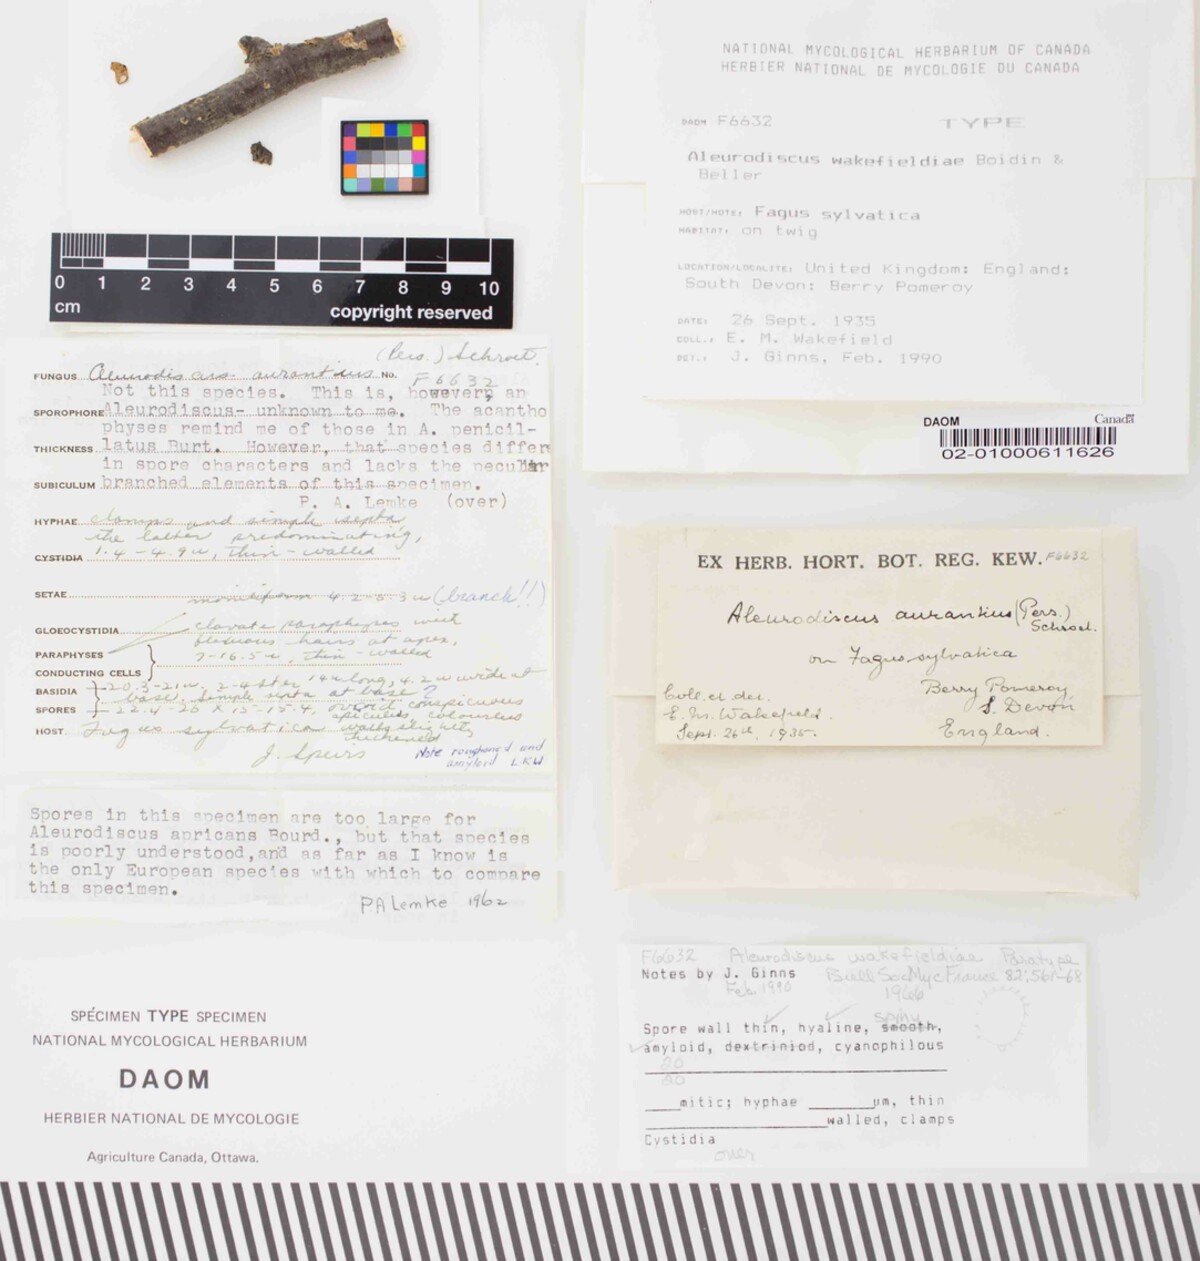 0 1 2 3 4 5 6 7 8 9 10
cm
copyright reserved
NATIONAL MYCOLOGICAL HERBARIUM OF CANADA
HERBIER NATIONAL DE MYCOLOGIE DU CANADA
DAOM F6632 TYPE
Aleurodiscus wakefieldiae Boidin &
Beller
HOST/HOTE: Fagus sylvatica
HABITAT: on twig
LOCATION/LOCALITE: United Kingdom: England:
South Devon: Berry Pomeroy
DATE: 26 Sept. 1935
COLL.: E. M. Wakefield
DET.: J. Ginns, Feb. 1990
DAOM
Canada
02-01000611626
(Pers.) Schroet.
FUNGUS Aleurodiscus aurantius No. F6632
Not this species. This is, however, an
SPOROPHORE Aleurodiscus- unknown to me. The acantho
physes remind me of those in A. penicil-
THICKNESS latus Burt. However, that species differ
in spore characters and lacks the peculiar
SUBICULUM branched elements of this specimen.
P. A. Lemke (over)
HYPHAE clamps and simple septa
the latter predominating,
CYSTIDIA 1.4-4.9 u, thin-walled
SETAE moniliform 4.2-6.3 u (branch!!)
GLOEOCYSTIDIA clavate paraphyses with
flexuous hairs at apex,
PARAPHYSES 7-16.5 u, thin-walled
CONDUCTING CELLS
BASIDIA 20.3-21 u, 2-4 ster 14 u long, 4.2 u wide at
base. Simple septa at base?
SPORES 22.4-26 x 15-15.4, ovoid conspicuous
apiculus, colourless
HOST Fagus sylvatica walls slightly
thickened
J. Speirs
Note roughened and
amyloid L.K.W
Spores in this specimen are too large for
Aleurodiscus apricans Bourd., but that species
is poorly understood,and as far as I know is
the only European species with which to compare
this specimen.
P.A Lemke 1962
EX HERB. HORT. BOT. REG. KEW. F6632
Aleurodiscus aurantius (Pers.)
Schroet.
on Fagus sylvatica
Coll. et det.
E. M. Wakefield.
Sept. 26th, 1935.
Berry Pomeroy,
S. Devon
England.
SPÉCIMEN TYPE SPECIMEN
NATIONAL MYCOLOGICAL HERBARIUM
DAOM
HERBIER NATIONAL DE MYCOLOGIE
Agriculture Canada, Ottawa.
F6632 Aleurodiscus wakefieldiae Paratype
Notes by J. Ginns Bull Soc Myc France 82:561-68
Feb. 1990 1966
Spore wall thin, hyaline, smooth,
amyloid, dextriniod, cyanophilous
20
20
____mitic; hyphae ________um, thin
______________________walled, clamps
Cystidia
over